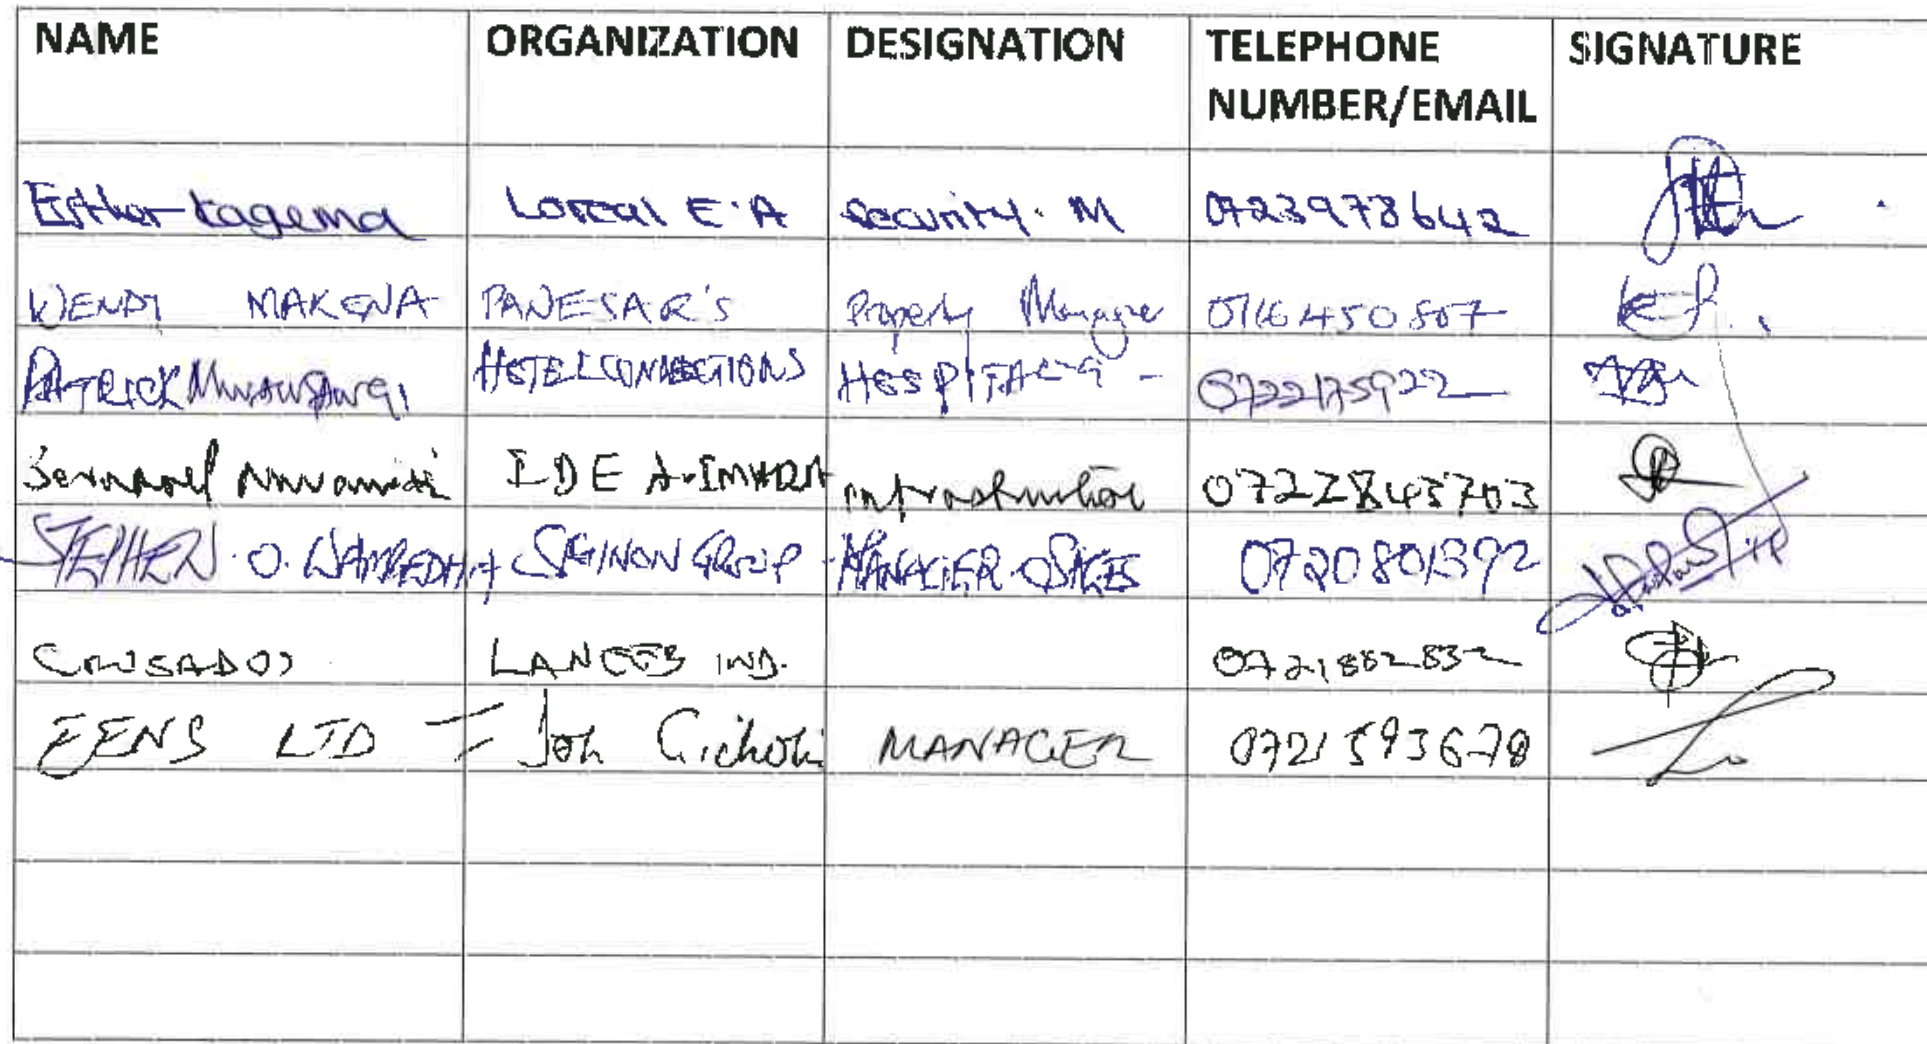 NAME ORGANIZATION DESIGNATION TELEPHONE NUMBER/EMAIL SIGNATURE
Esther Kagema Loreal E.A Security. M 0723978642
WENDY MAKENA PANESAR's Property Manager 0716450807
PATRICK HOTEL CONNECTIONS 0722175922
I.D.E.A. infrastruction 0722843703
STEPHEN O. SIGINON GROUP MANAGER 0720801392
LANCEB IND. 0721882832
EENS LTD = Joh Gichohi MANAGER 0721593678